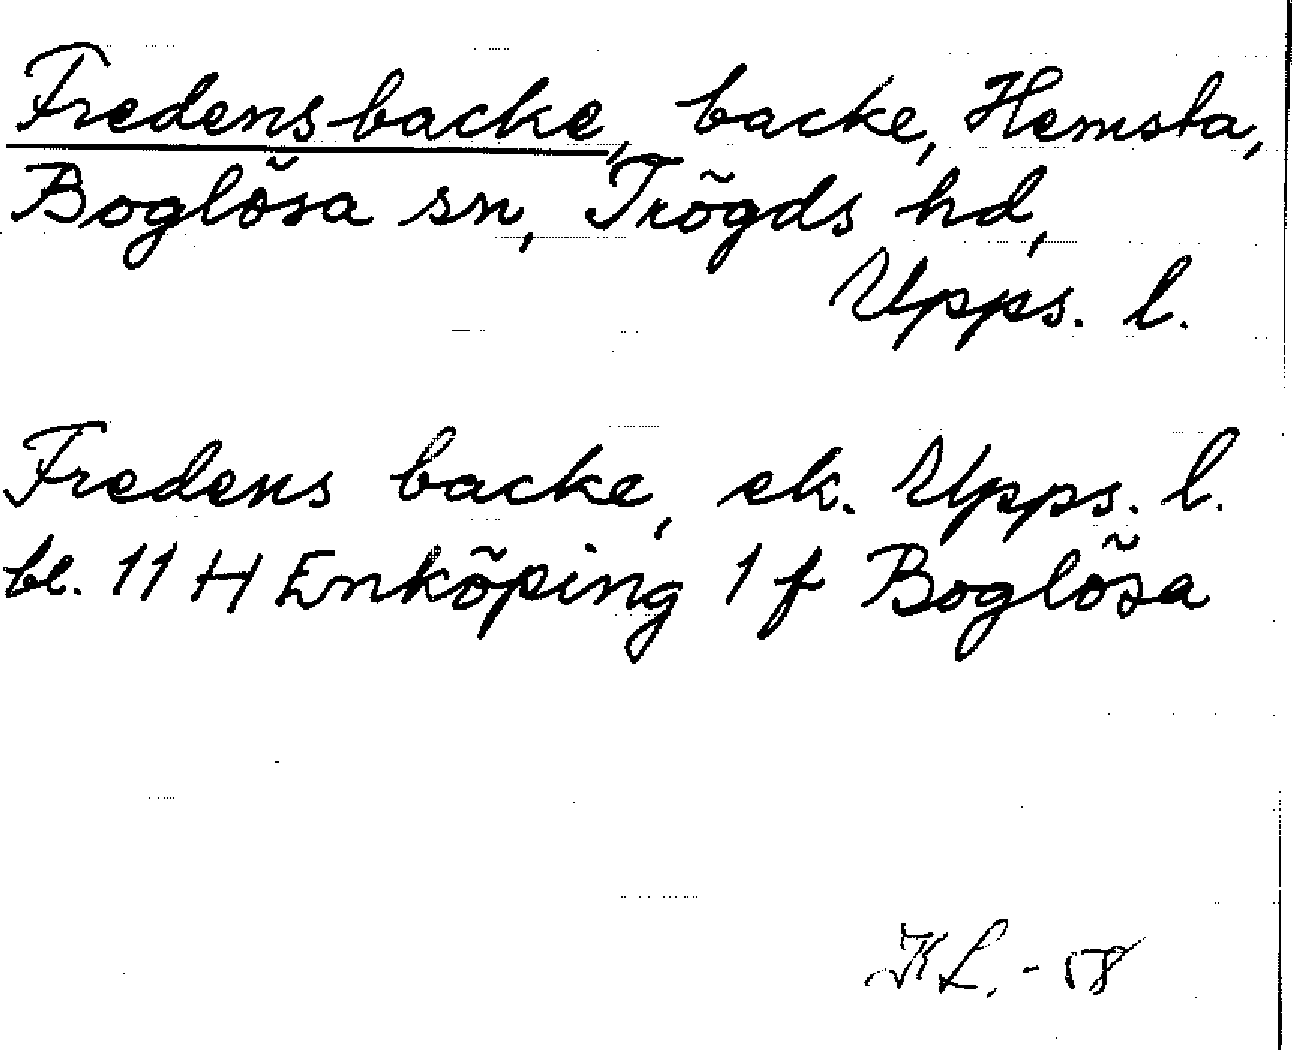 Fredensbacke, backe, Hemsta,
Boglösa sn, Trögds hd,
Upps. l.
Fredens backe, ek. Upps. l.
bl. 11 H Enköping 1 f Boglösa
KL. - 58